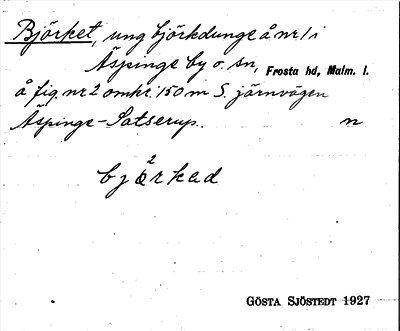 Björket, ung björkdunge å nr 1 i
Äspinge by o. sn, Frosta hd, Malm. l.
å fig. nr 2 omkr. 150 m S. järnvägen
Äspinge-Satserup. n
2
bjärkad
GÖSTA SJÖSTEDT 1927